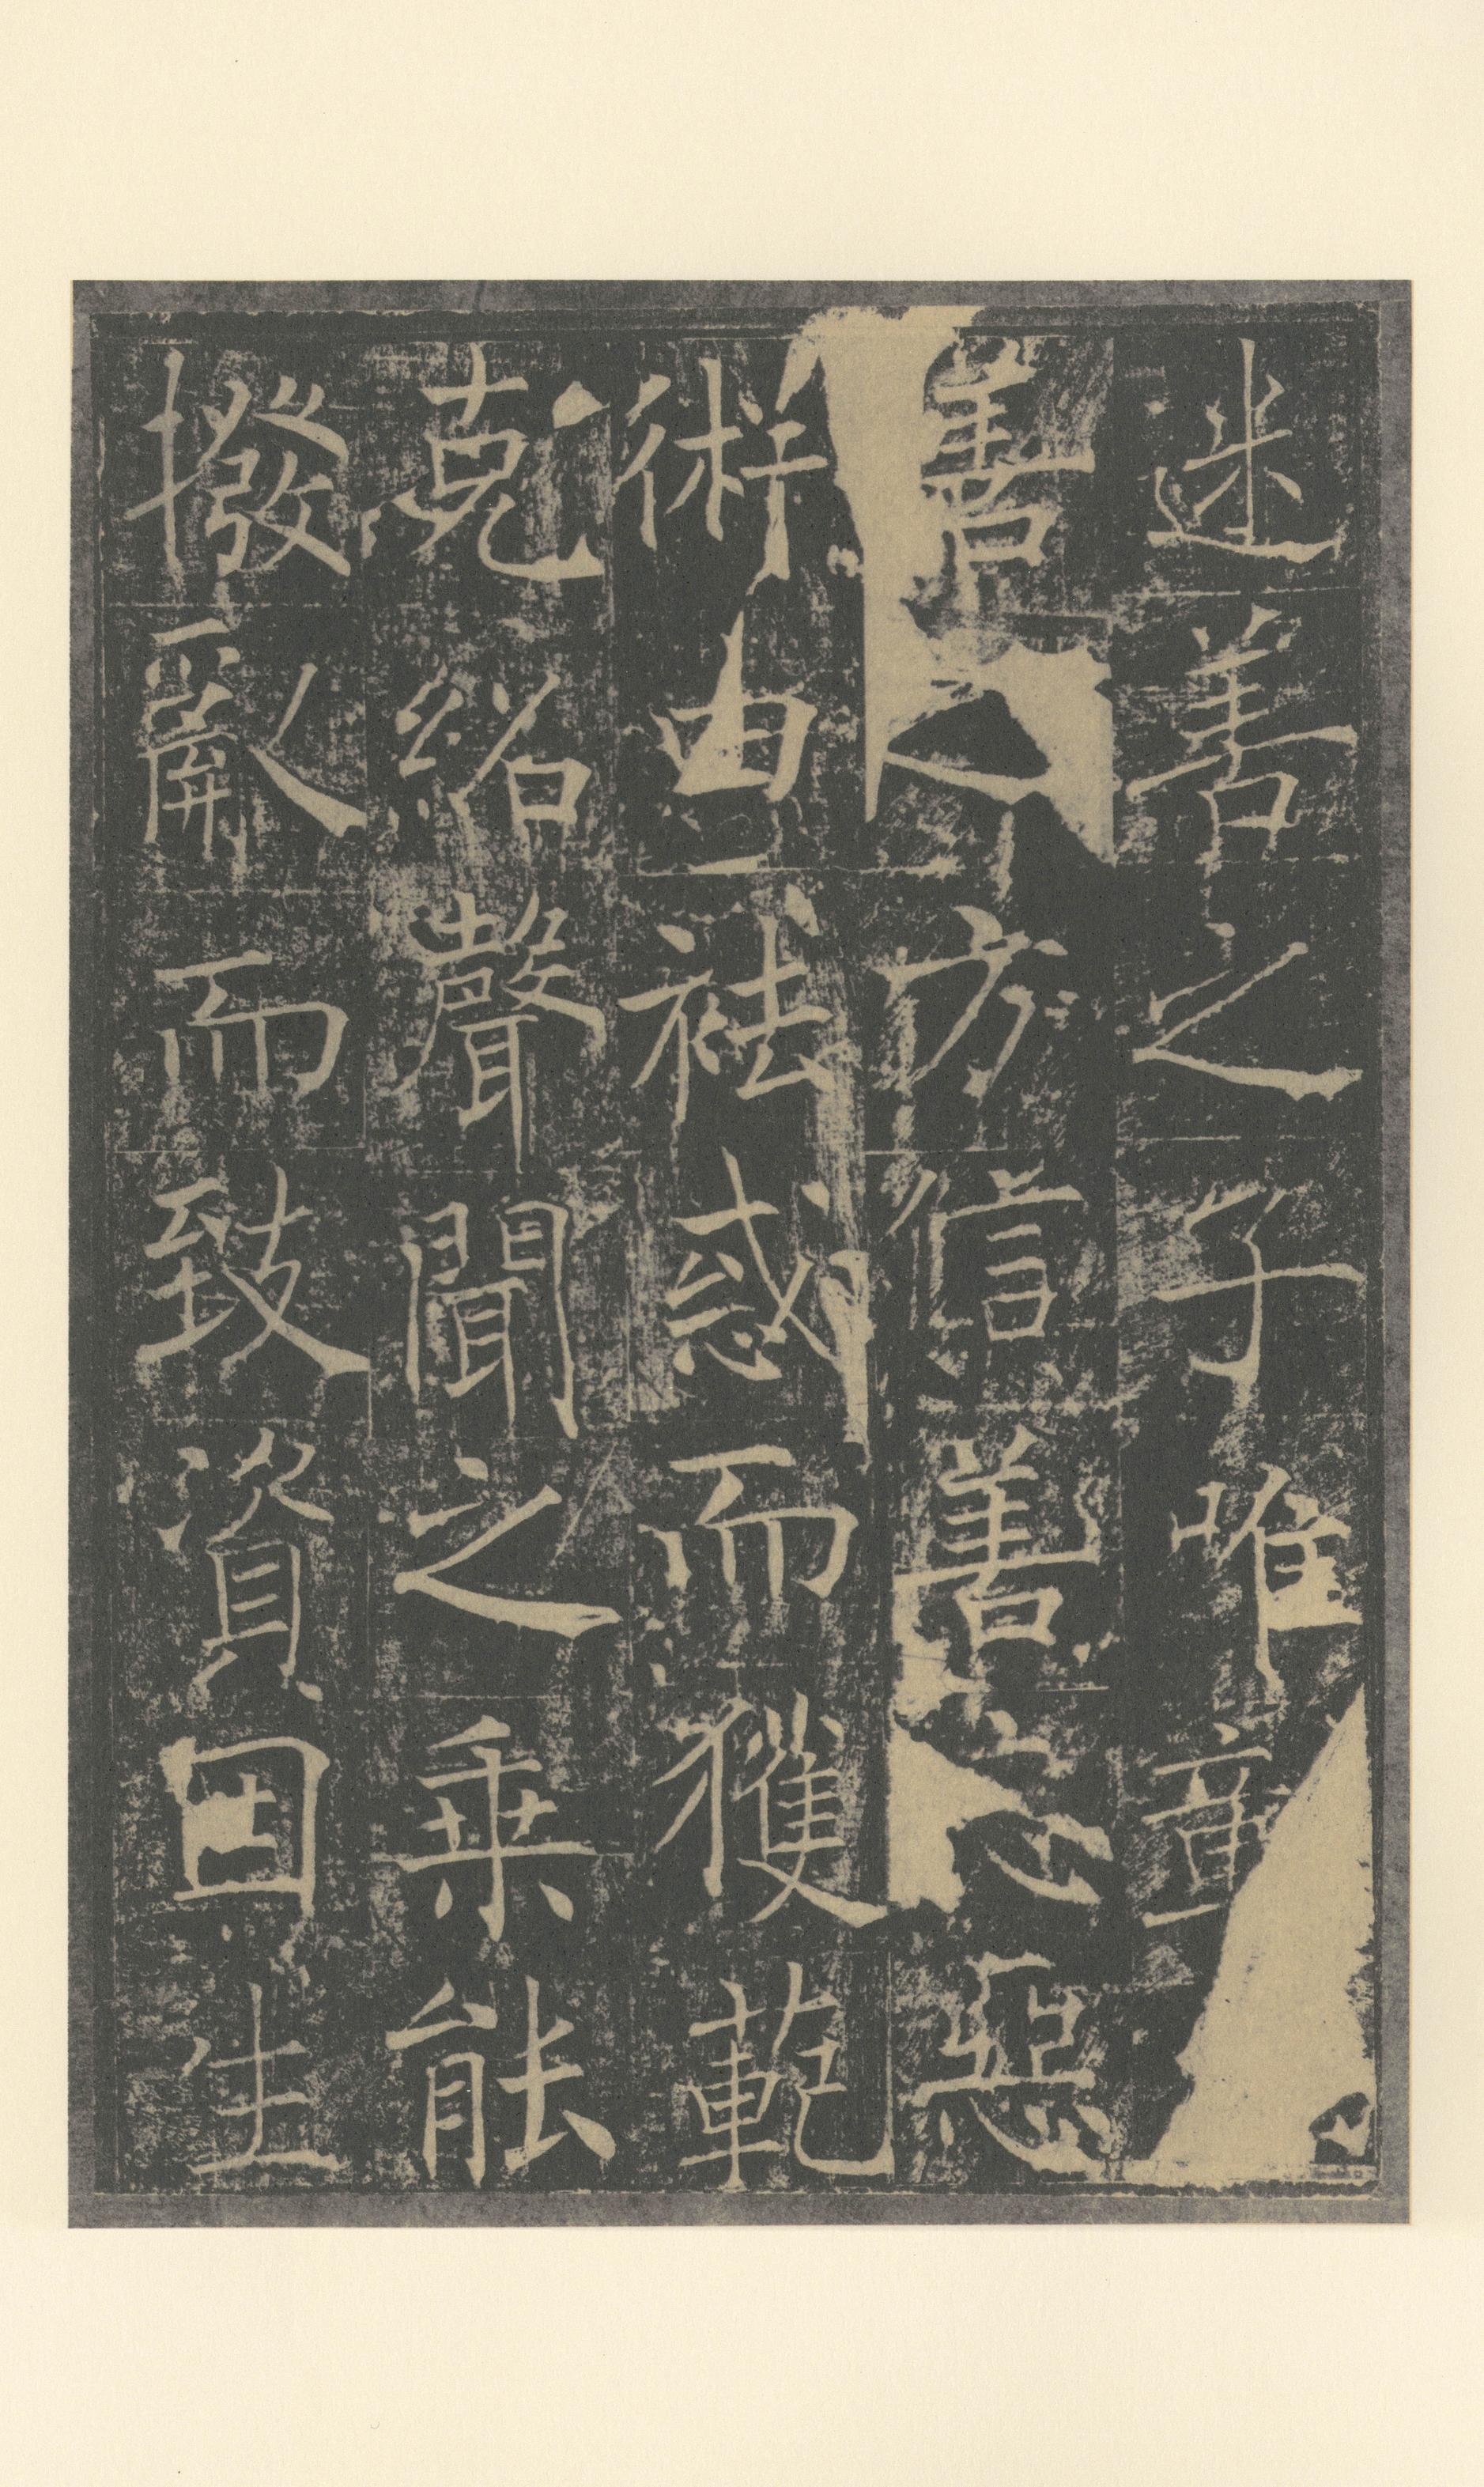 迷善之子唯
善方信善惡
術由祛惑而獲範
克紹聲聞之乘能
撥亂而致資因生